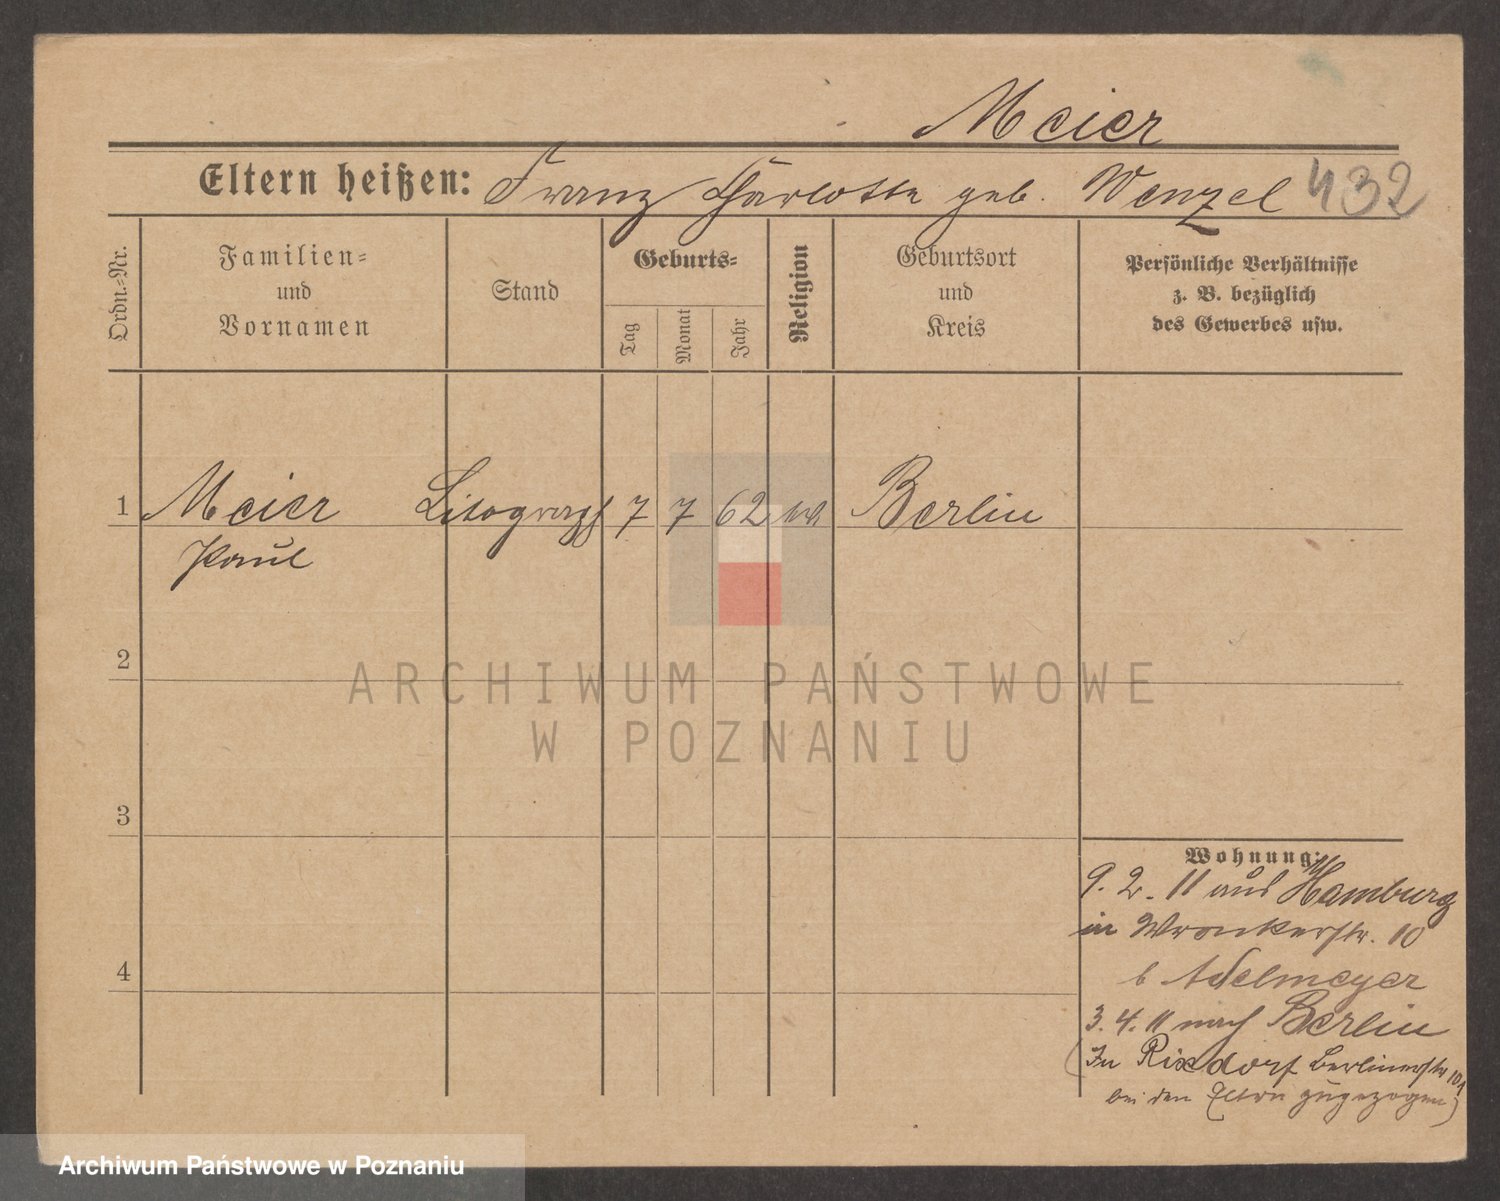 Meier
Eltern heißen: Franz Charlotte geb. Wenzel 432
Ordn.=Nr.
Familien=
und
Vornamen
Stand
Geburts=
Tag
Monat
Jahr
Religion
Geburtsort
und
Kreis
Persönliche Verhältnisse
z. B. bezüglich
des Gewerbes usw.
1 Meier Litograph 7 7 62 Berlin
Paul
2
3
4
Wohnung:
9. 2. 11 aus Hamburg
in Wronkerstr. 10
b Adelmeyer
3. 4. 11 nach Berlin
(In Rixdorf Berlinerstr 101
bei den Eltern zugezogen)
ARCHIWUM PAŃSTWOWE
W POZNANIU
Archiwum Państwowe w Poznaniu